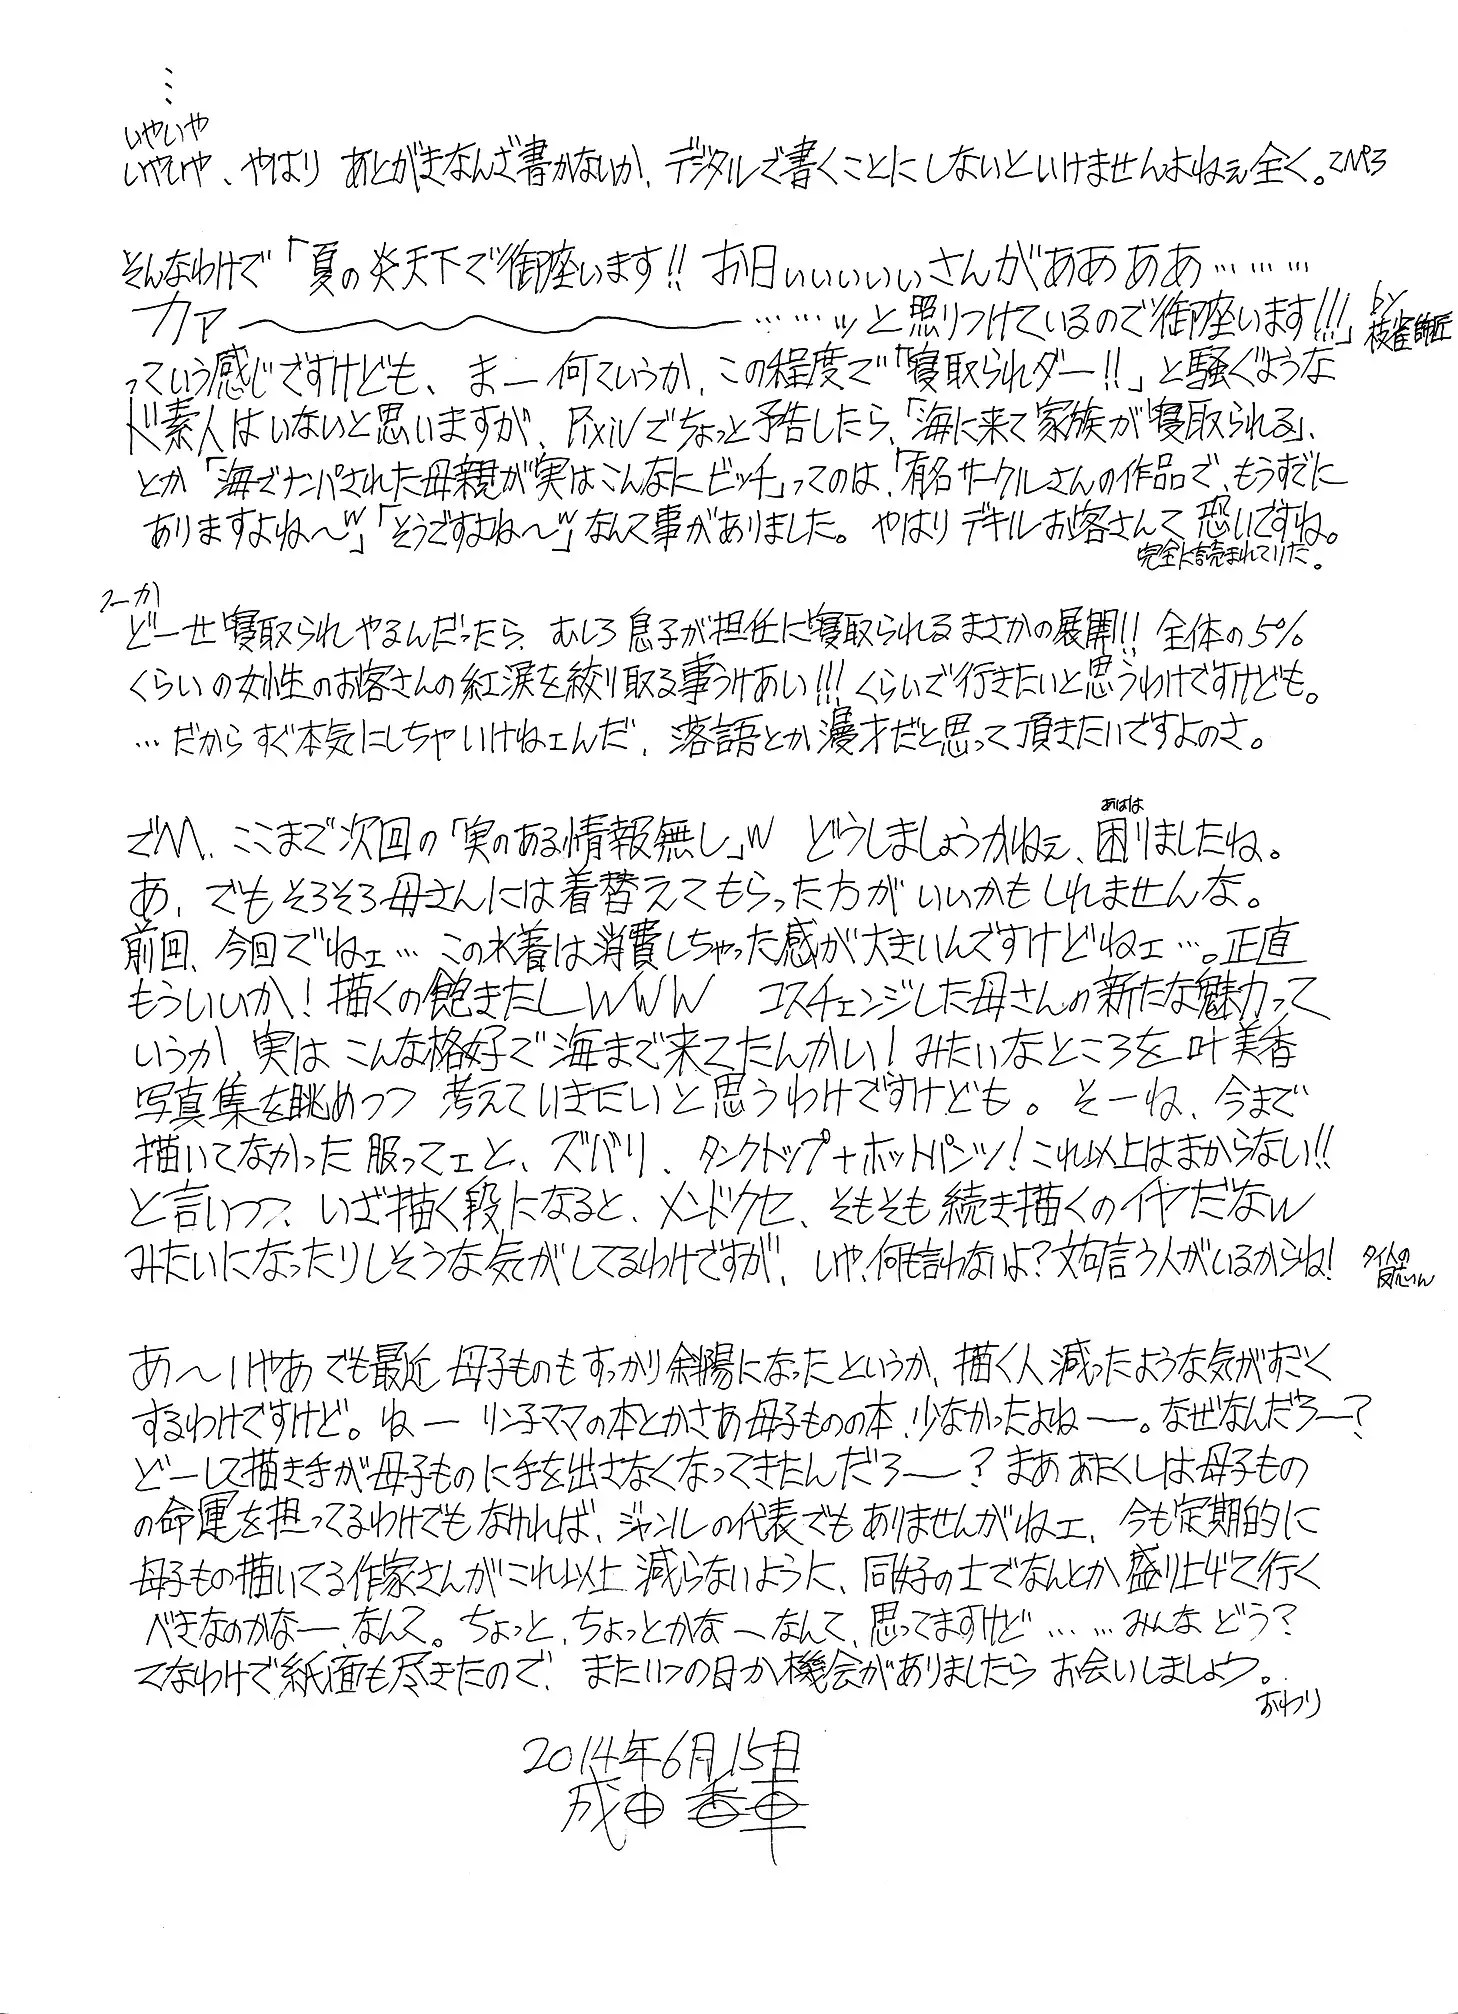 …
いやいや
いやいや、やはり あとがきなんざ書かないか、デジタルで書くことにしないといけませんよねぇ全く。
そんなわけで「夏の炎天下で御座います!! お日ぃぃぃぃぃさんがああああ………
カァ〜〜〜〜……ッと照りつけているので御座います!!!」by 枝雀師匠
っていう感じですけども、まー何ていうか、この程度で「寝取られダー!!」と騒ぐような
ド素人はいないと思いますが、Pixivでちょっと予告したら、「海に来て家族が寝取られる」、
とか「海でナンパされた母親が実はこんなにビッチ」ってのは、「有名サークルさんの作品で、もうすでに
ありますよね〜w」「そうですよね〜w」なんて事がありました。やはりデキルお客さんて恐いですね。
完全に読まれていた。
つーか
どーせ寝取られやるんだったら、むしろ息子が担任に寝取られるまさかの展開!! 全体の5%
くらいの女性のお客さんの紅涙を絞り取る事うけあい!!! くらいで行きたいと思うわけですけども。
…だからすぐ本気にしちゃいけねェんだ、落語とか漫才だと思って頂きたいですよのさ。
でM、ここまで次回の「実のある情報無し」w どうしましょうかねぇ、困りましたね。
あはは
あ、でもそろそろ母さんには着替えてもらった方がいいかもしれませんな。
前回、今回でねェ…この水着は消費しちゃった感が大きいんですけどねェ…。正直
もういいか!描くの飽きたしwww コスチェンジした母さんの新たな魅力って
いうか、実はこんな格好で海まで来てたんかい!みたいなところを叶美香
写真集を眺めつつ 考えていきたいと思うわけですけども。そーね、今まで
描いてなかった服ってェと、ズバリ、タンクトップ+ホットパンツ!これ以上はまからない!!
と言いつつ、いざ描く段になると、メンドクセ、そもそも続き描くのイヤだなw
みたいになったりしそうな気がしてるわけですが、いや、何も言わないよ?文句言う人がいるからね!
あ〜いやあでも最近 母子ものもすっかり斜陽になったというか、描く人減ったような気がすごく
するわけですけど。ねー リン子ママの本とかさあ母子ものの本、少なかったよねー。なぜなんだろー?
どーして描き手が母子ものに手を出さなくなってきたんだろー?まああたくしは母子もの
の命運を担ってるわけでもなければ、ジャンルの代表でもありませんがねェ、今も定期的に
母子もの描いてる作家さんがこれ以上 減らないように、同好の士でなんとか盛り上げて行く
べきなのかなー、なんて。ちょっと、ちょっとかなーなんて、思ってますけど……みんなどう?
てなわけで紙面も尽きたので、またいつの日か機会がありましたらお会いしましょう。
おわり
2014年6月15日
成田香車